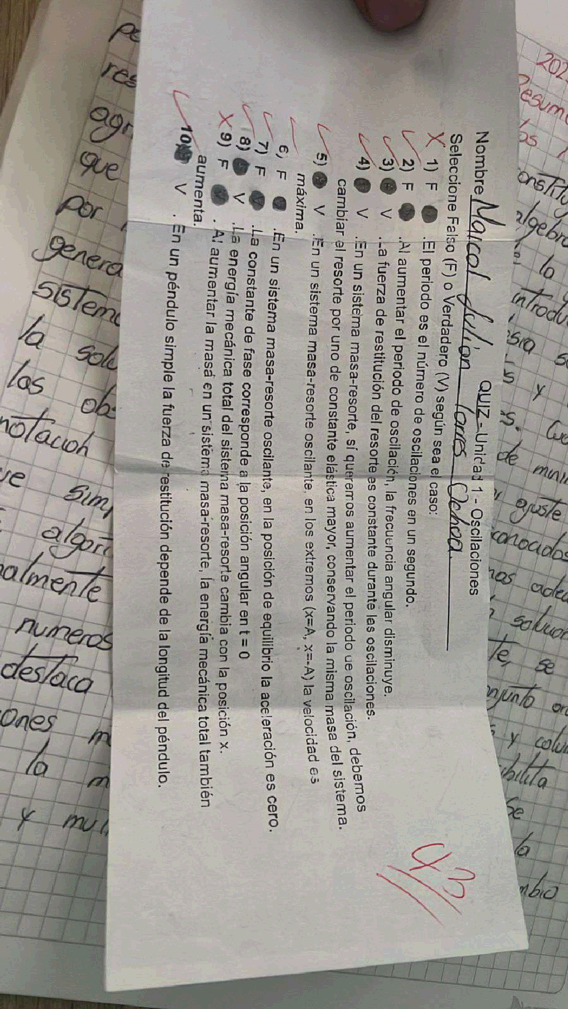 Nombre Marcol Julian Torres Ochoa
QUIZ-Unidad 1- Oscilaciones
Seleccione Falso (F) o Verdadero (V) según sea el caso:
1) F . El periodo es el número de oscilaciones en un segundo.
2) F . Al aumentar el periodo de oscilación, la frecuencia angular disminuye.
3) V . La fuerza de restitución del resorte es constante durante las oscilaciones.
4) V . En un sistema masa-resorte, sí queremos aumentar el periodo de oscilación, debemos
cambiar el resorte por uno de constante elástica mayor, conservando la misma masa del sistema.
5) V . En un sistema masa-resorte oscilante, en los extremos (x=A, x=-A) la velocidad es
máxima.
6) F . En un sistema masa-resorte oscilante, en la posición de equilibrio la aceleración es cero.
7) F . La constante de fase corresponde a la posición angular en t = 0
8) V . La energía mecánica total del sistema masa-resorte cambia con la posición x.
9) F . Al aumentar la masa en un sistema masa-resorte, la energía mecánica total también
aumenta.
10) V . En un péndulo simple la fuerza de restitución depende de la longitud del péndulo.
43
202
Resum
los
algebra
lo
introdu
s y
de
ajuste
conocidos
solucion
te, se
conjunto
y
la
pe
res
agr
que
por
genera
sistem
la solu
las ob
notación
simp
algori
almente
numeros
destaca
ones m
la m
y mu